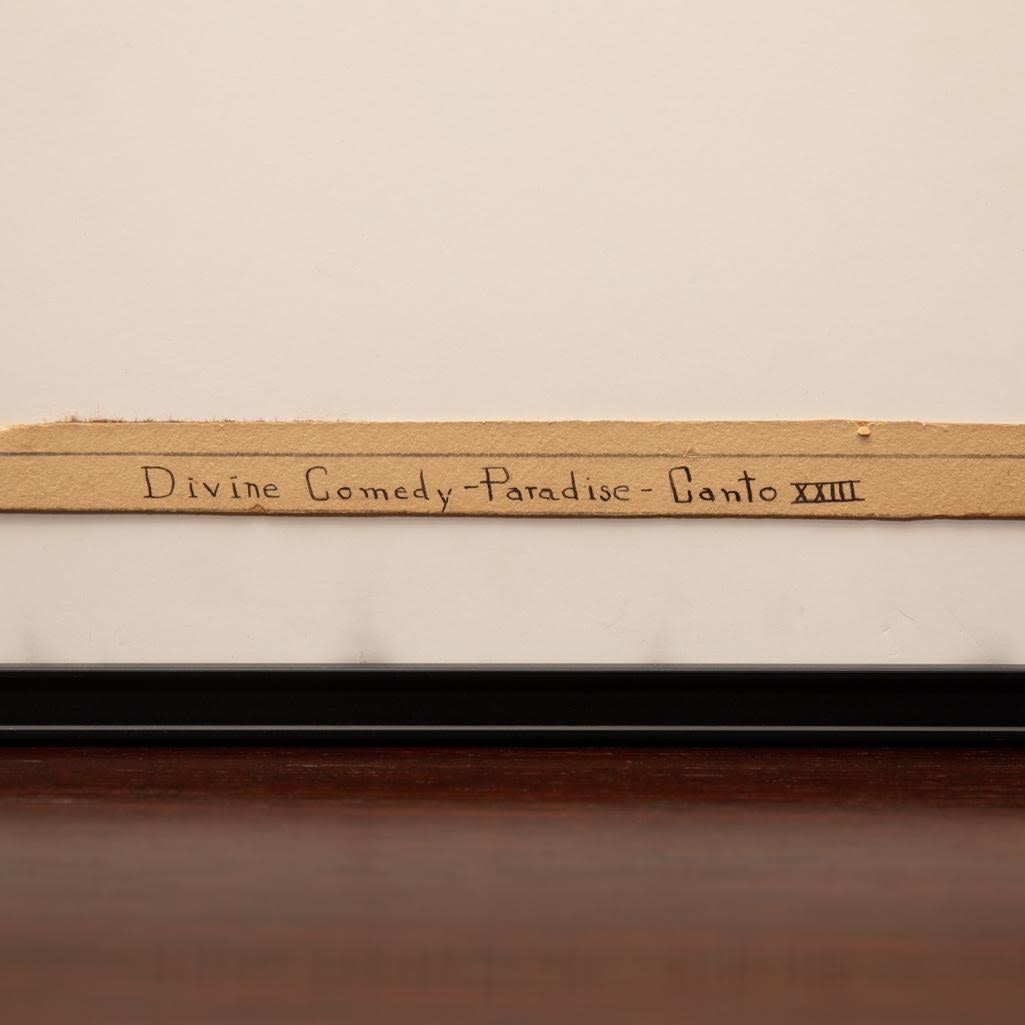 Divine Comedy - Paradise - Canto XXIII